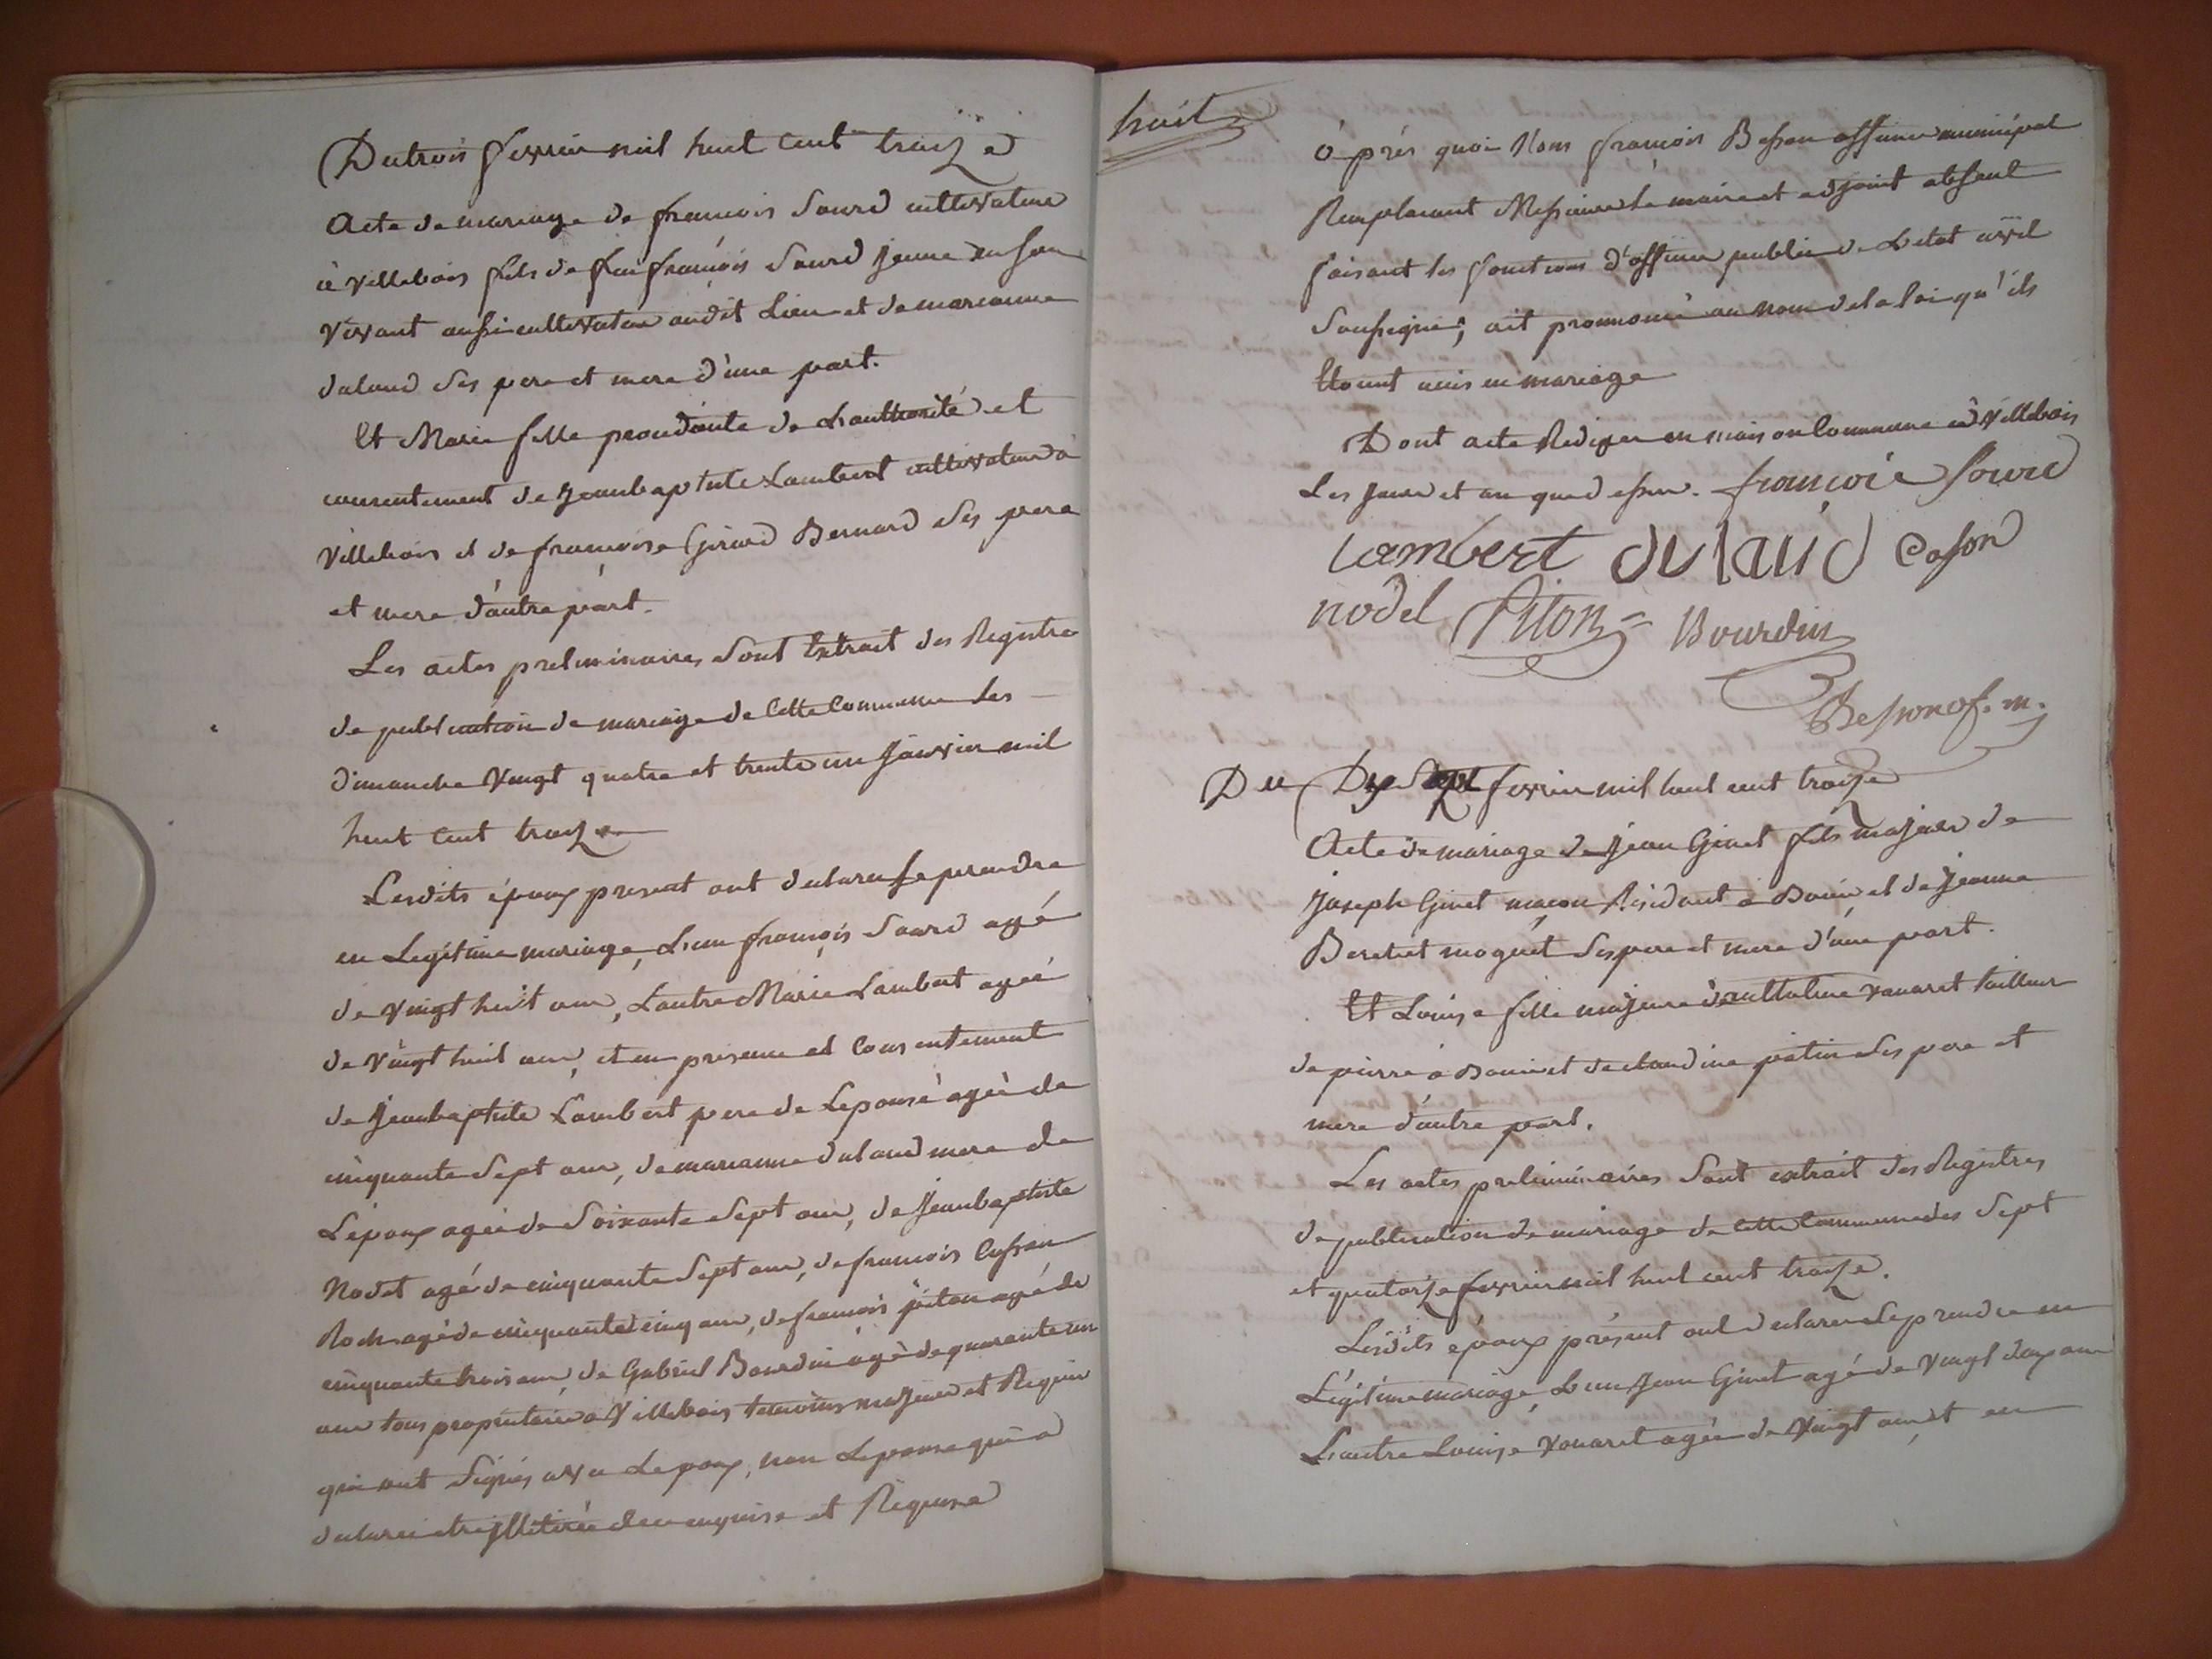 Du trois fevrier mil huit cent traize
Acte de mariage de francois Sourd cultivateur
à Villebois fils de feu francois Sourd jeune en son
vivant aussi cultivateur audit Lieu et de marianne
dulaud Ses pere et mere d'une part.
Et Marie fille procedante de L'authorité et
consentement de Jeanbaptiste Lambert cultivateur à
Villebois et de francoise Girard Bernard Ses pere
et mere d'autre part.
Les actes preliminaires Sont Extrait des Registre
de publication de mariage de Cette Commune Les
dimanche Vingt quatre et trente un Janvier mil
huit Cent traize
Lesdits époux present ont declaré se prendre
en Legitime mariage, L'un françois Sourd agé
de Vingt huit ans, L'autre Marie Lambert agée
de Vingt huit ans, et en presence et Consentement
de Jeanbaptiste Lambert pere de Lepouse agé de
cinquante Sept ans, de marianne dulaud mere de
Lépoux agée de Soixante Sept ans, de Jeanbaptiste
Nodet agé de cinquante Sept ans, de francois Casson
Roch agé de cinquante cinq ans, de francois piton agé de
cinquante trois ans, de Gabriel Bourdin agé de quarante un
ans tous proprietaire a Villebois temoins majeur et Requis
qui ont Signés avec Lepoux, non Lepouse qui a
declaré etre illitirée de ce enquise et Requise
huit
à prés quoi Nous françois Besson officier municipal
Remplacant Messieurs le maire et adjoint absent
faisant les fonctions d'officier public de L'etat civil
Soussigné; ait prononcé au nom de la loi qu'ils
Etoient unis en mariage
Dont acte Rediger en maison Commune à Villebois
Les jour et an que dessus. françois Sourd
Lambert dulaud Cason
nodet Piton Bourdin
Besson of. m.
Du Dix Sept fevrier mil huit cent traize
Acte de mariage de Jean Ginet fils majeur de
Joseph Ginet maçon Résidant à Bouis et de Jeanne
Berthet moguet Ses pere et mere d'une part.
Et Louise fille majeure d'anthelme vanaret tailleur
de pierre à Bouis et de claudine patin Ses pere et
mere d'autre part.
Les actes preliminaires Sont extrait des Registres
de publication de mariage de Cette Commune des Sept
et quatorze fevrier mil huit cent traize.
Lesdits époux présent ont declaré Se prendre en
Légitime mariage, L'un Jean Ginet agé de Vingt deux ans
L'autre Louise Vanaret agée de Vingt ans et en